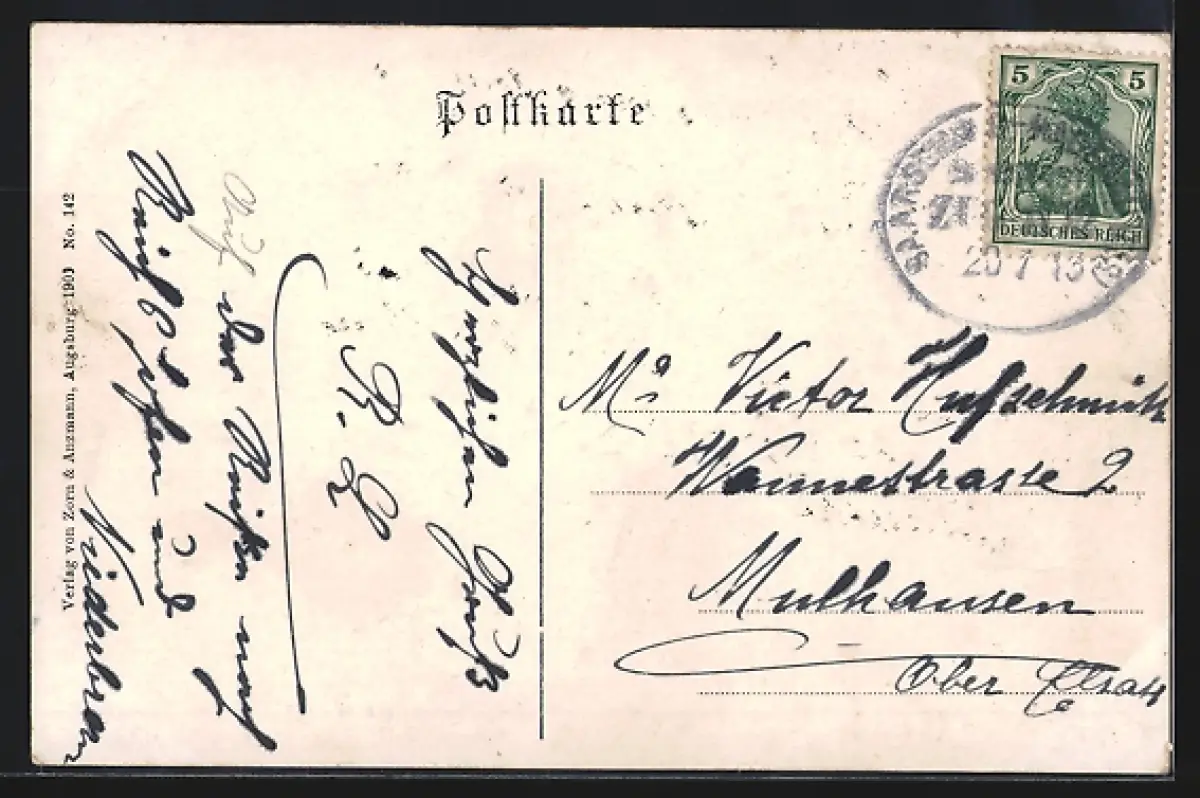 Postkarte
5 5
DEUTSCHES REICH
20 7 13
Herzlichen Gruß
Auf der nach
Reichshofen und
Niederbronn
Mr Victor Hufschmitt
Wannestrasse 2
Mulhausen
Ober Elsass
Verlag von Zorn & Anzmann, Augsburg No. 142